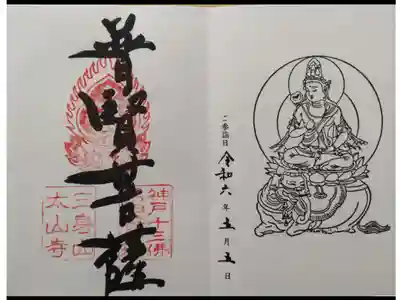 普賢菩薩
神戸十三佛
三身山
太山寺
ご参詣日 令和六年五月五日